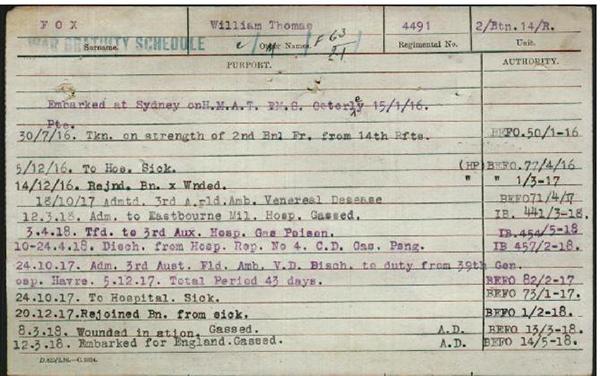 FOX William Thomas 4491 2/Btn.14/R.
WAR GRATUITY SCHEDULE
Surname. Other Names. F 63 Regimental No. Unit.
21
PURPORT. AUTHORITY.
Embarked at Sydney onH.M.A.T. RMS. Osterly 15/1/16.
Pte.
30/7/16. Tkn. on strength of 2nd Bnl Fr. from 14th Rfts. BEFO.50/1-16
5/12/16. To Hos. Sick. (HP) BEFO.77/4/16
14/12/16. Rejnd. Bn. x Wnded. " " 1/3-17
18/10/17 Admtd. 3rd A.Fld.Amb. Venereal Desease BEFO71/4/17
12.3.18. Adm. to Eastbourne Mil. Hosp. Gassed. IB. 441/3-18.
3.4.18. Tfd. to 3rd Aux. Hosp. Gas Poisen. IB.454/5-18
10-24.4.18. Disch. from Hosp. Rep. No 4. C.D. Gas. Psng. IB 457/2-18.
24.10.17. Adm. 3rd Aust. Fld. Amb. V.D. Bisch. to duty from 39th Gen.
osp. Havre. 5.12.17. Total Period 43 days. BEFO 82/2-17
24.10.17. To Hospital. Sick. BEFO 73/1-17.
20.12.17.Rejoined Bn. from sick. BEFO 1/2-18.
8.3.18. Wounded in ation. Gassed. A.D. BEFO 13/3-18.
12.3.18. Embarked for England.Gassed. A.D. BEFO 14/5-18.